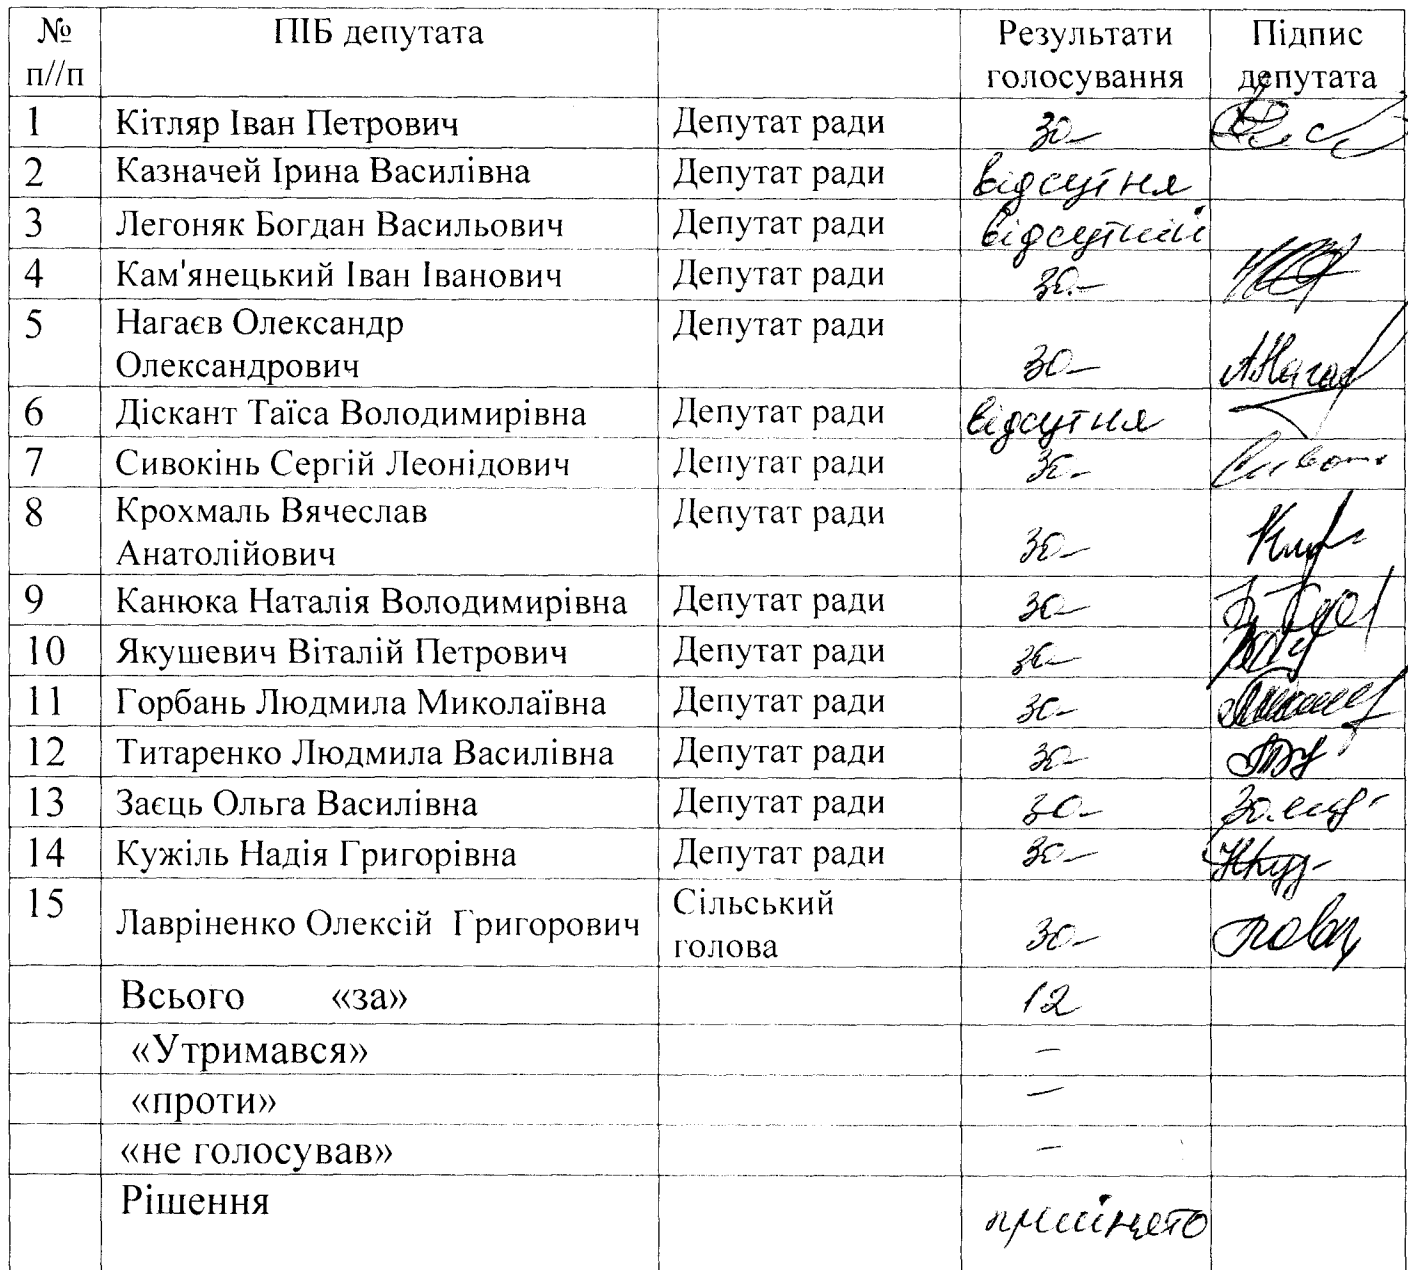 № ПІБ депутата Результати Підпис
п//п голосування депутата
1 Кітляр Іван Петрович Депутат ради За
2 Казначей Ірина Василівна Депутат ради відсутня
3 Легоняк Богдан Васильович Депутат ради відсутній
4 Кам'янецький Іван Іванович Депутат ради За
5 Нагаєв Олександр Депутат ради
Олександрович За
6 Діскант Таїса Володимирівна Депутат ради відсутня
7 Сивокінь Сергій Леонідович Депутат ради За
8 Крохмаль Вячеслав Депутат ради
Анатолійович За
9 Канюка Наталія Володимирівна Депутат ради За
10 Якушевич Віталій Петрович Депутат ради За
11 Горбань Людмила Миколаївна Депутат ради За
12 Титаренко Людмила Василівна Депутат ради За
13 Заєць Ольга Василівна Депутат ради За
14 Кужіль Надія Григорівна Депутат ради За
15 Лавріненко Олексій Григорович Сільський
голова За
Всього «за» 12
«Утримався» –
«проти» –
«не голосував» –
Рішення прийнято